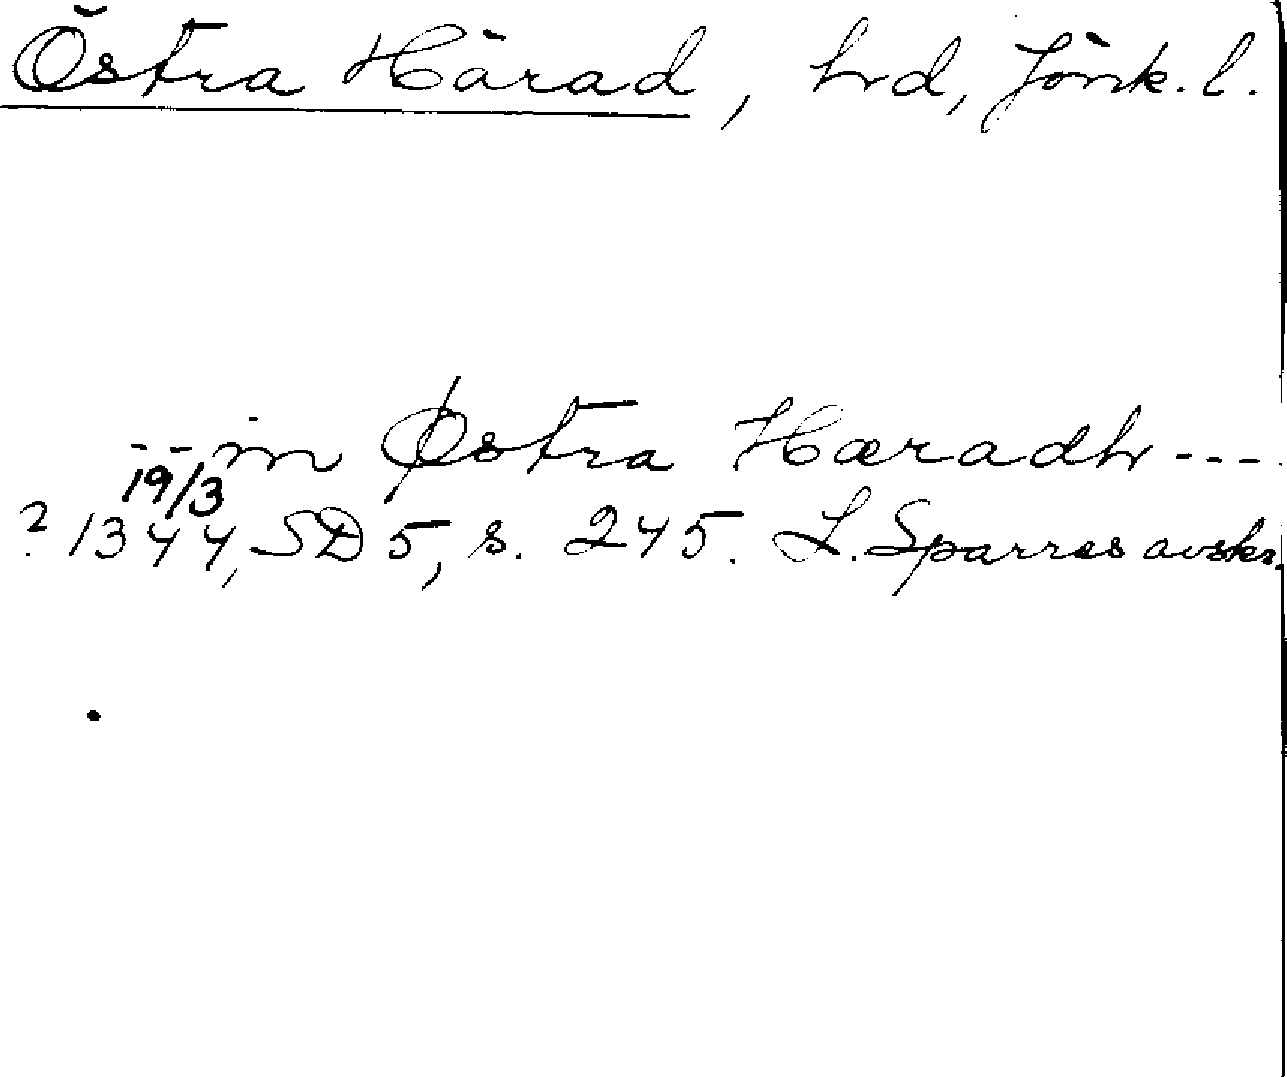 Östra Härad, hrd, Jönk. l.
--in Østra Hæradh---
19/3
? 1344, SD 5, s. 245. L. Sparres avskr.